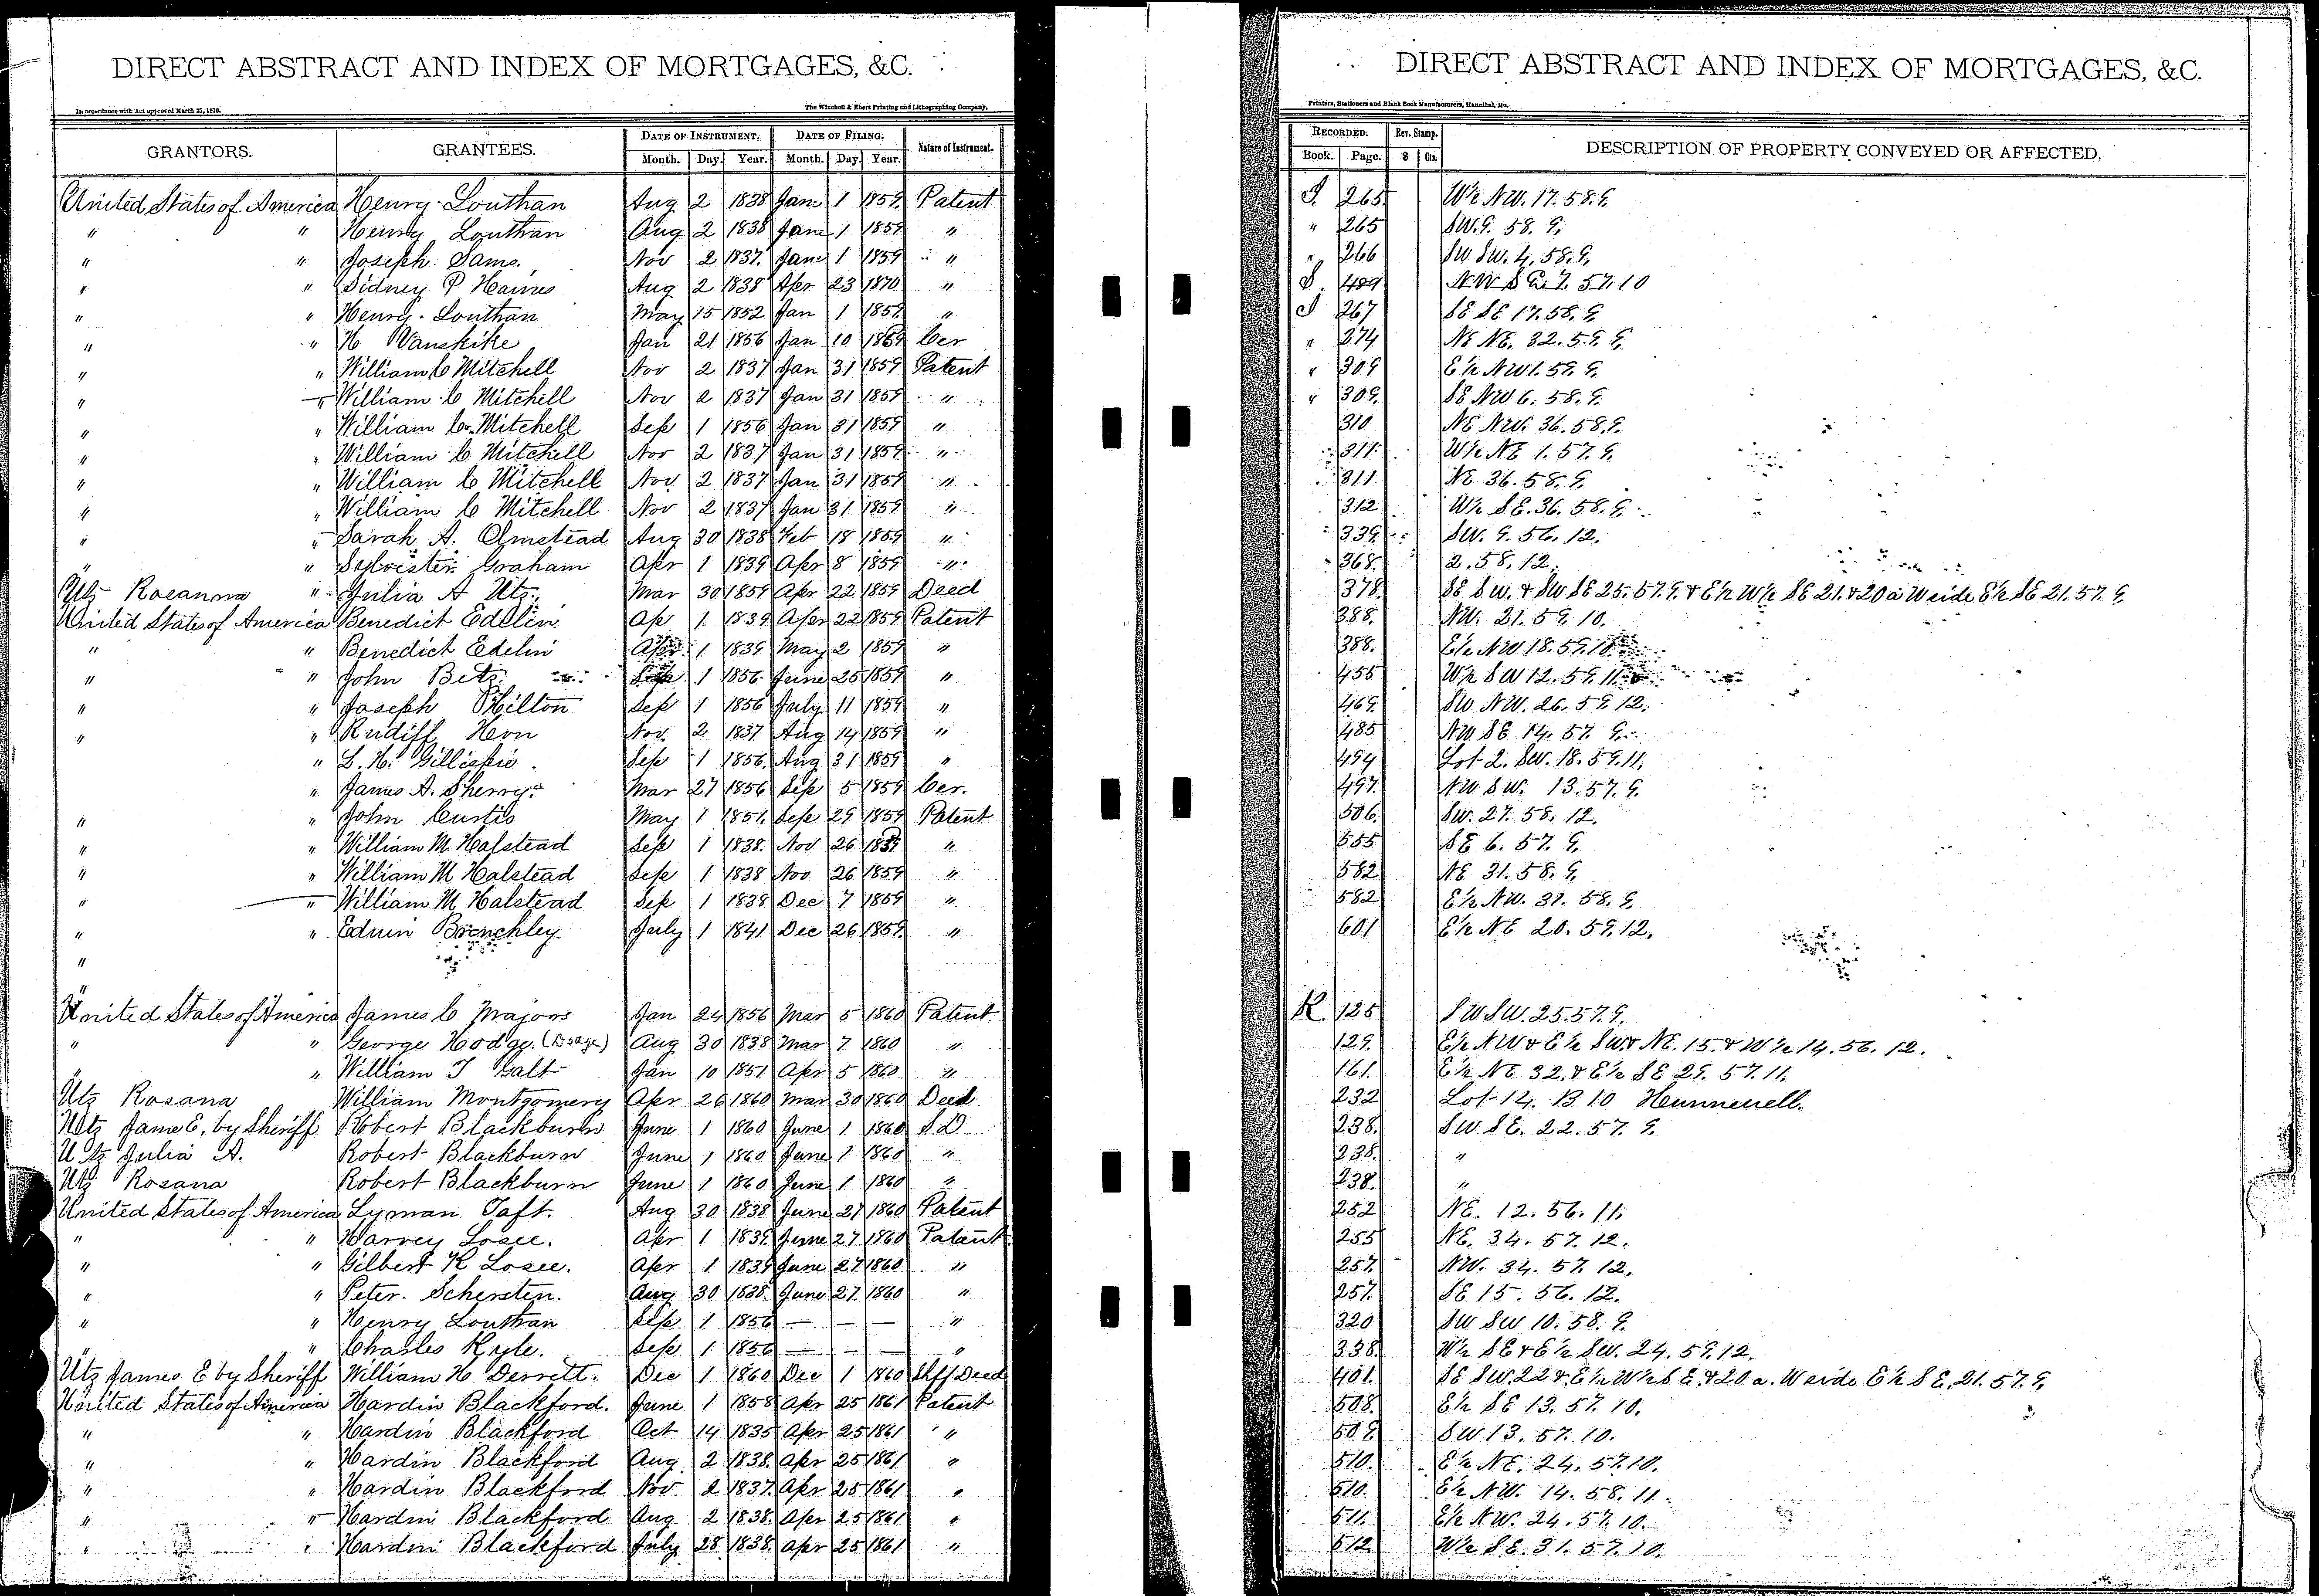 DIRECT ABSTRACT AND INDEX OF MORTGAGES, &C.
In accordance with Act approved March 25, 1870.
The Winchell & Ebert Printing and Lithographing Company,
GRANTORS. GRANTEES. DATE OF INSTRUMENT. DATE OF FILING. Nature of Instrument.
Month. Day. Year. Month. Day. Year.
United States of America Henry Louthan Aug 2 1838 Jan 1 1859 Patent
" " Henry Louthan Aug 2 1838 Jane 1 1859 "
" " Joseph Sams. Nov 2 1837 Jan 1 1859 "
" " Sidney P Haines Aug 2 1838 Apr 23 1870 "
" " Henry Louthan May 15 1852 Jan 1 1859 "
" " H Vanskike Jan 21 1856 Jan 10 1859 Cer
" " William C Mitchell Nov 2 1837 Jan 31 1859 Patent
" " William C Mitchell Nov 2 1837 Jan 31 1859 "
" " William C. Mitchell Sep 1 1856 Jan 31 1859 "
" " William C Mitchell Nov 2 1837 Jan 31 1859 "
" " William C Mitchell Nov 2 1837 Jan 31 1859 "
" " William C Mitchell Nov 2 1837 Jan 31 1859 "
" " Sarah A. Olmstead Aug 30 1838 Feb 18 1859 "
" " Sylvister Graham Apr 1 1839 Apr 8 1859 "
Utz Roseanna " Julia A Utz. Mar 30 1859 Apr 22 1859 Deed
United States of America Benedict Edelin Ap 1 1839 Apr 22 1859 Patent
" " Benedict Edelin Apr 1 1839 May 2 1859 "
" " John Betz Sep 1 1856 June 25 1859 "
" " Joseph Hilton Sep 1 1856 July 11 1859 "
" " Rudiff Hon Nov. 2 1837 Aug 14 1859 "
" L. H. Gillispie Sep 1 1856. Aug 31 1859 "
" James A. Sherry. Mar 27 1856 Sep 5 1859 Cer.
" " John Curtis May 1 1851. Sep 29 1859 Patent
" " William M. Halstead Sep 1 1838. Nov 26 1859 "
" " William M Halstead Sep 1 1838 Nov 26 1859 "
" " William M Halstead Sep 1 1838 Dec 7 1859 "
" " Edwin Brenchley. July 1 1841 Dec 26 1859 "
"
"
United States of America James C Majors Jan 24 1856 Mar 5 1860 Patent
" " George Hodge. (Doage) Aug 30 1838 Mar 7 1860 "
" " William T Galt Jan 10 1851 Apr 5 1860 "
Utz Rosana William Montgomery Apr 26 1860 Mar 30 1860 Deed
Utz James E. by Sheriff Robert Blackburn June 1 1860 June 1 1860 S D
Utz Julia A. Robert Blackburn June 1 1860 June 1 1860 "
Utz Rosana Robert Blackburn June 1 1860 June 1 1860 "
United States of America Lyman Taft. Aug 30 1838 June 27 1860 Patent
" " Harvey Losee. Apr 1 1839 June 27 1860 Patent
" " Gilbert K Losee. Apr 1 1839 June 27 1860 "
" " Peter Schersten. Aug 30 1838. June 27. 1860 "
" " Henry Louthan Sep. 1 1856 — — — "
" " Charles Kyle. Sep 1 1856 — — — "
Utz James E by Sheriff William H. Derrett. Dec 1 1860 Dec 1 1860 Shff Deed
United States of America Hardin Blackford. June 1 1858 Apr 25 1861 Patent
" " Hardin Blackford Oct 14 1835 Apr 25 1861 "
" " Hardin Blackford Aug 2 1838. Apr 25 1861 "
" " Hardin Blackford Nov. 2 1837. Apr 25 1861 "
" " Hardin Blackford Aug 2 1838. Apr 25 1861 "
" " Hardin Blackford July 28 1838. Apr 25 1861 "
DIRECT ABSTRACT AND INDEX OF MORTGAGES, &C.
Printers, Stationers and Blank Book Manufacturers, Hannibal, Mo.
RECORDED. Rev. Stamp. DESCRIPTION OF PROPERTY CONVEYED OR AFFECTED.
Book. Page. $ Cts.
J. 265 W½ NW. 17. 58. 9.
" 265 SW. 9. 58. 9.
" 266 SW SW. 4. 58. 9.
S. 489 NW SE. 7. 57. 10
J 267 SE SE 17. 58. 9.
" 274 NE NE. 32. 59. 9.
" 309 E½ NW 1. 59. 9.
" 309. SE NW 6. 58. 9.
310 NE NW. 36. 58. 9.
311. W½ NE 1. 57. 9.
311 NE 36. 58. 9.
312 W½ SE. 36. 58. 9.
339. SW. 9. 56. 12.
368. 2. 58. 12.
378. SE SW. & SW SE 25. 57. 9. & E½ W½ SE 21. & 20 a W side E½ SE 21. 57. 9.
388. NW. 21. 59. 10.
388. E½ NW 18. 59. 10
455 W½ SW 12. 59. 11.
469. SW NW. 26. 59. 12.
485 NW SE 14. 57. 9.
494 Lot 2. SW. 18. 59. 11.
497. NW SW. 13. 57. 9.
506. SW. 27. 58. 12.
555 SE 6. 57. 9.
582 NE 31. 58. 9.
582 E½ NW. 31. 58. 9.
601 E½ NE 20. 59. 12.
K. 125 SW SW. 25. 57. 9.
129. E½ NW & E½ SW. & NE. 15. & W½ 14. 56. 12.
161. E½ NE 32. & E½ SE 29. 57. 11.
232 Lot 14. B 10 Hunnewell.
238. SW SE. 22. 57. 9.
238. "
238. "
252 NE. 12. 56. 11.
255 NE. 34. 57. 12.
257. NW. 34. 57. 12.
257. SE 15. 56. 12.
320 SW SW 10. 58. 9.
338. W½ SE & E½ SW. 24. 59. 12.
401. SE SW. 22 & E½ W½ S E. & 20 a. W side E½ S E. 21. 57. 9.
508. E½ SE 13. 57. 10.
509. SW 13. 57. 10.
510. E½ NE. 24. 57. 10.
510. E½ NW. 14. 58. 11.
511. E½ NW. 24. 57. 10.
512. W½ SE. 31. 57. 10.